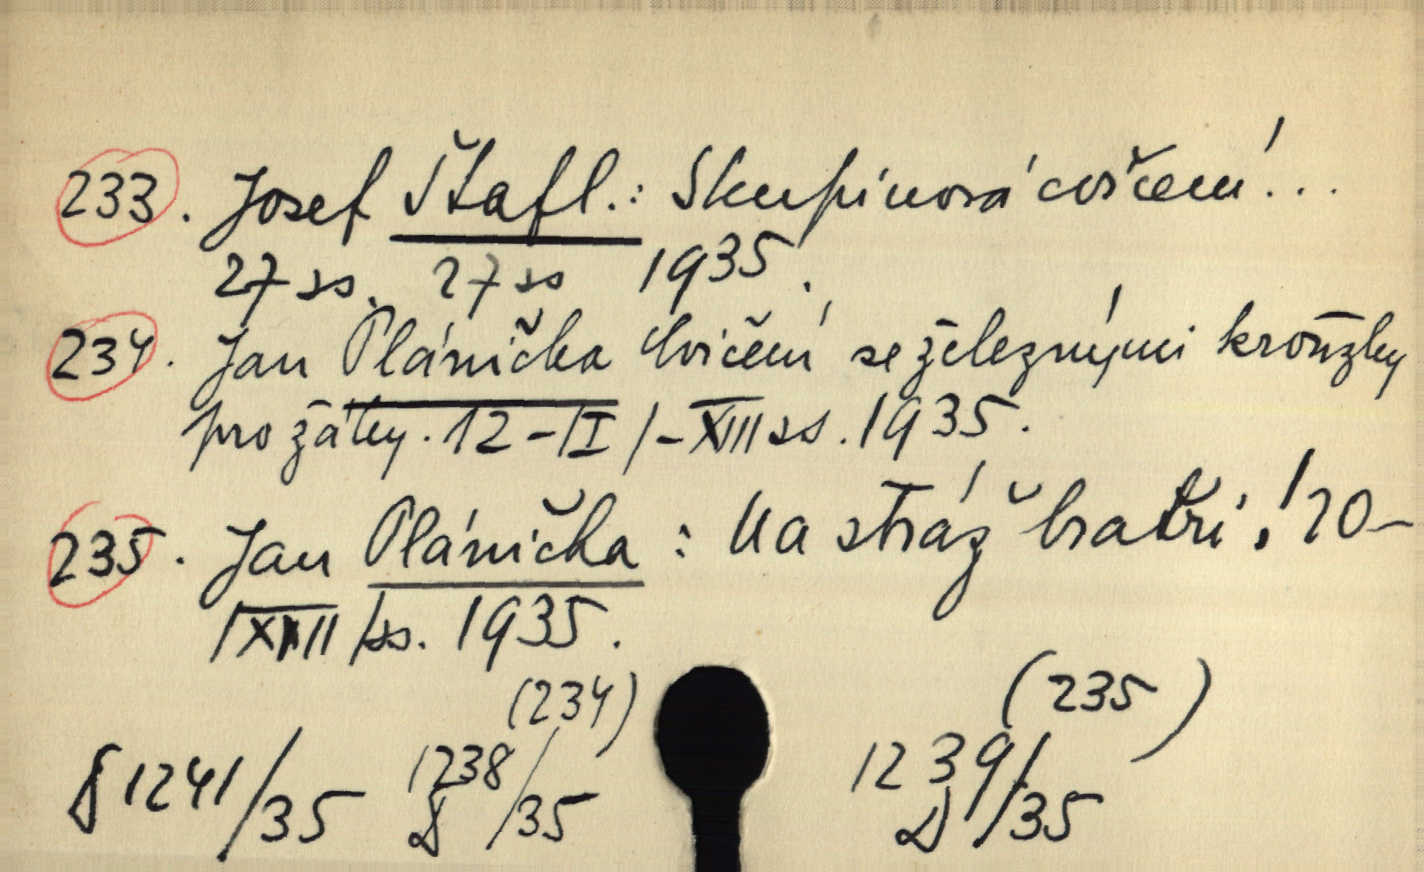 233. Josef Štafl.: Skupinová cvičení...
27 ss. 27 ss 1935.
234. Jan Plánička Cvičení se železnými kroužky
pro žáky. 12 - II / - XIII ss. 1935.
235. Jan Plánička: Na stráž bratři! 20 -
XIII /ss. 1935.
(234) (235)
1241/35 1238/35 1239/35
D D